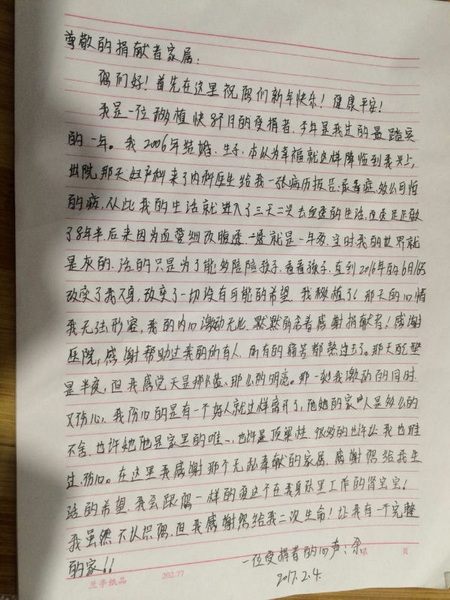 尊敬的捐献者家属：
您们好！首先在这里祝您们新年快乐！健康平安！
我是一位移植快8个月的受捐者，今年是我过的最踏实
的一年。我2006年结婚、生子，本以为幸福就这样降临到我身上，
出院那天妇产科来了内科医生给我一张病历报告：尿毒症，好可怕
的病，从此我的生活就进入了三天二次去血透的生活，血透足足做
了8年半后来因为血管细改腹透一透就是一年多，当时我的世界就
是灰的，活的只是为了能够陪陪孩子，看看孩子，直到2016年的6月
改变了我不良，改变了一切没有可能的希望，我移植了！那天的心情
我无法形容，我的内心激动无比，默默的念着感谢捐献者！感谢
医院，感谢帮助过我的所有人，所有的痛苦都熬过去了。那天
是半夜，但我感觉天是那么蓝、那么的明亮。那一刻我激动的同时
又伤心，我伤心的是有一个好人就这样离开了，他她的家人是多么的
不舍，也许她他是家里的唯一、也许是顶梁柱 很多的也许让我也难
过、伤心。在这里我感谢那个无私奉献的家属，感谢您给我生
活的希望，我会跟您一样的爱这个在我身体里工作的肾宝宝！
我虽然不认识您，但我感谢您给我二次生命！让我有一个完整
的家！！
一位受捐者的心声：余
2017.2.4.